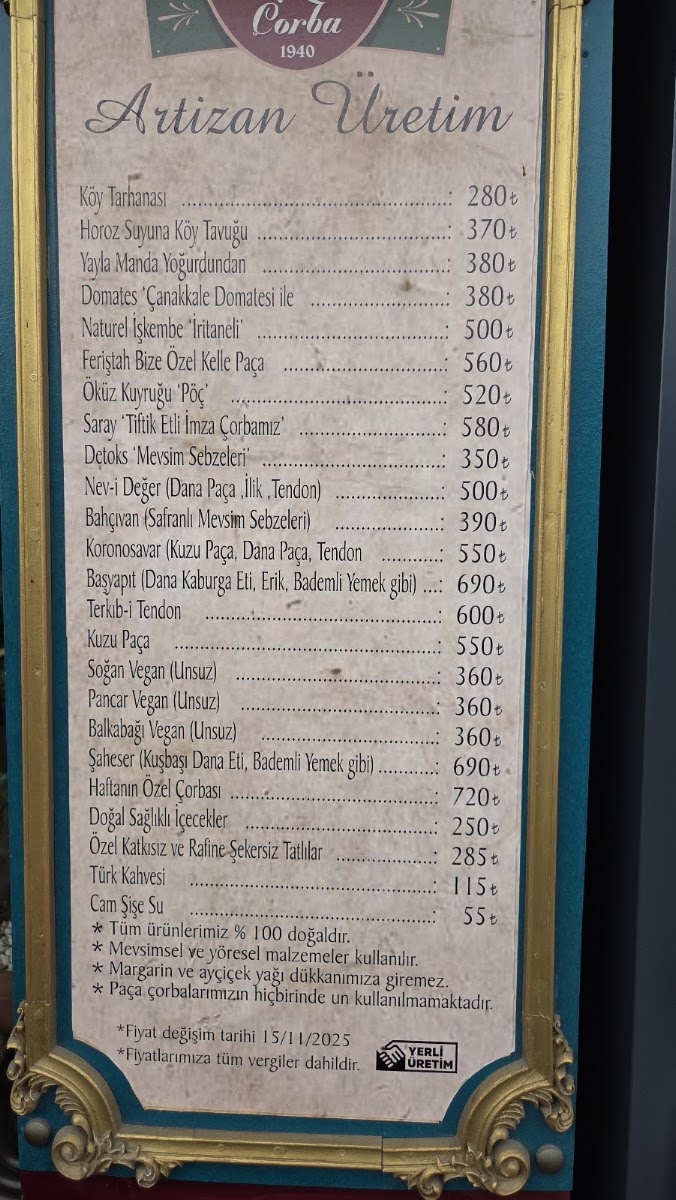 Çorba
1940
Artizan Üretim
Köy Tarhanası ........................................: 280₺
Horoz Suyuna Köy Tavuğu .............................: 370₺
Yayla Manda Yoğurdundan ............................: 380₺
Domates 'Çanakkale Domatesi ile ....................: 380₺
Naturel İşkembe 'İritaneli' ..............................: 500₺
Feriştah Bize Özel Kelle Paça ........................: 560₺
Öküz Kuyruğu 'Pöç' ................................: 520₺
Saray 'Tiftik Etli İmza Çorbamız' .....................: 580₺
Detoks 'Mevsim Sebzeleri' ...........................: 350₺
Nev-i Değer (Dana Paça ,İlik ,Tendon) ................: 500₺
Bahçıvan (Safranlı Mevsim Sebzeleri) ................: 390₺
Koronosavar (Kuzu Paça, Dana Paça, Tendon ...........: 550₺
Başyapıt (Dana Kaburga Eti, Erik, Bademli Yemek gibi) ...: 690₺
Terkib-i Tendon ....................................: 600₺
Kuzu Paça ........................................: 550₺
Soğan Vegan (Unsuz) ..............................: 360₺
Pancar Vegan (Unsuz) ..............................: 360₺
Balkabağı Vegan (Unsuz) ..........................: 360₺
Şaheser (Kuşbaşı Dana Eti, Bademli Yemek gibi) ..........: 690₺
Haftanın Özel Çorbası ................................: 720₺
Doğal Sağlıklı İçecekler .............................: 250₺
Özel Katkısız ve Rafine Şekersiz Tatlılar ...............: 285₺
Türk Kahvesi .....................................: 115₺
Cam Şişe Su .....................................: 55₺
* Tüm ürünlerimiz % 100 doğaldır.
* Mevsimsel ve yöresel malzemeler kullanılır.
* Margarin ve ayçiçek yağı dükkanımıza giremez.
* Paça çorbalarımızın hiçbirinde un kullanılmamaktadır.
*Fiyat değişim tarihi 15/11/2025
*Fiyatlarımıza tüm vergiler dahildir.
YERLİ
ÜRETİM